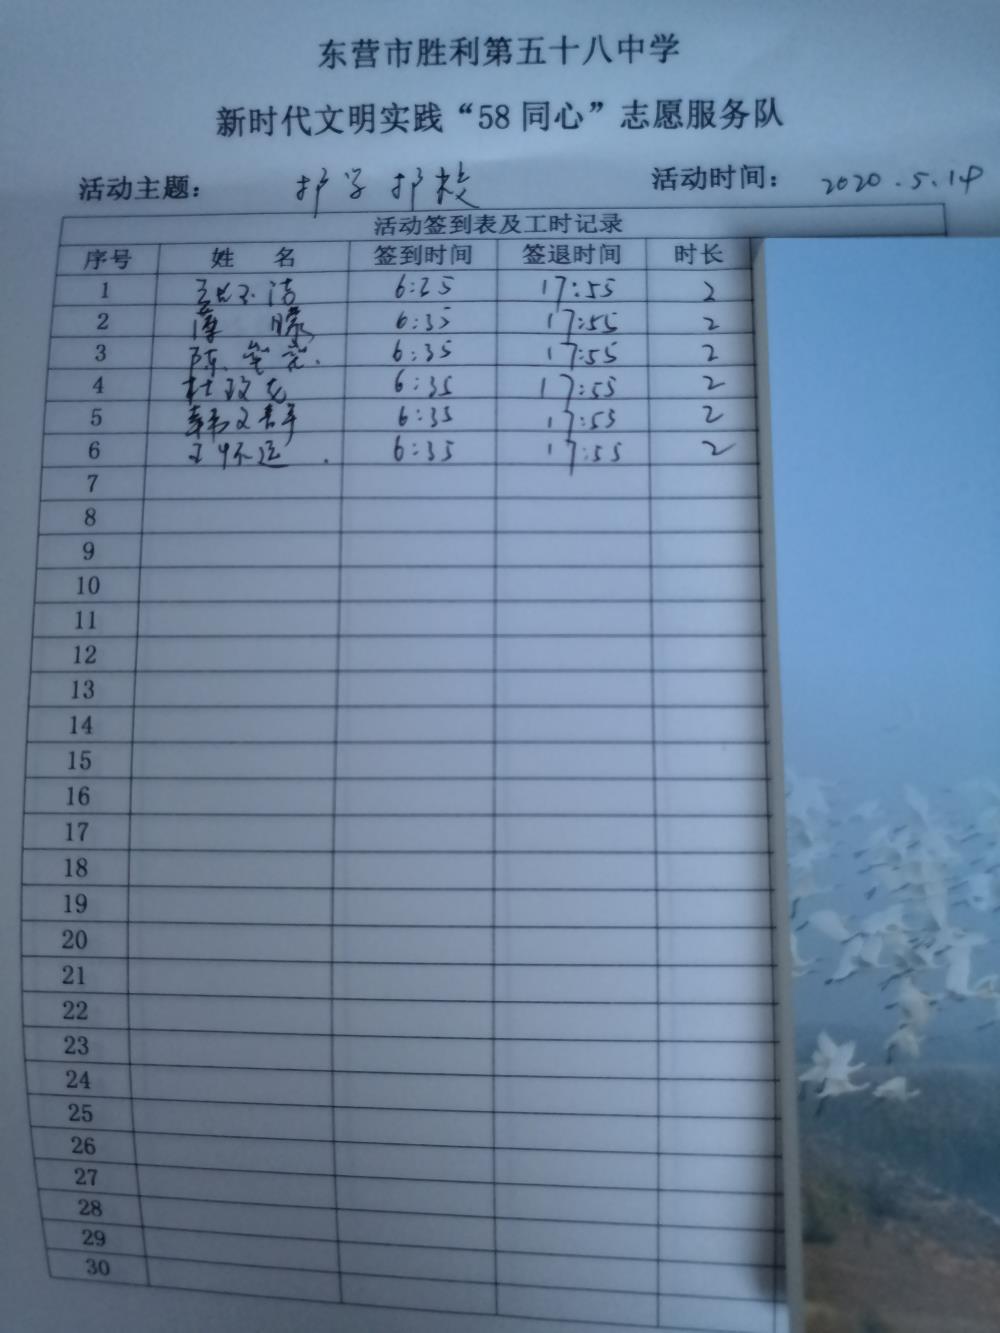 东营市胜利第五十八中学
新时代文明实践“58同心”志愿服务队
活动主题： 护学护校 活动时间： 2020.5.14
活动签到表及工时记录
序号 姓 名 签到时间 签退时间 时长
1 洁 6:35 17:55 2
2 薄 6:35 17:55 2
3 陈 6:35 17:55 2
4 杜政 6:35 17:55 2
5 韩文 6:35 17:55 2
6 王怀远 6:35 17:55 2
7
8
9
10
11
12
13
14
15
16
17
18
19
20
21
22
23
24
25
26
27
28
29
30